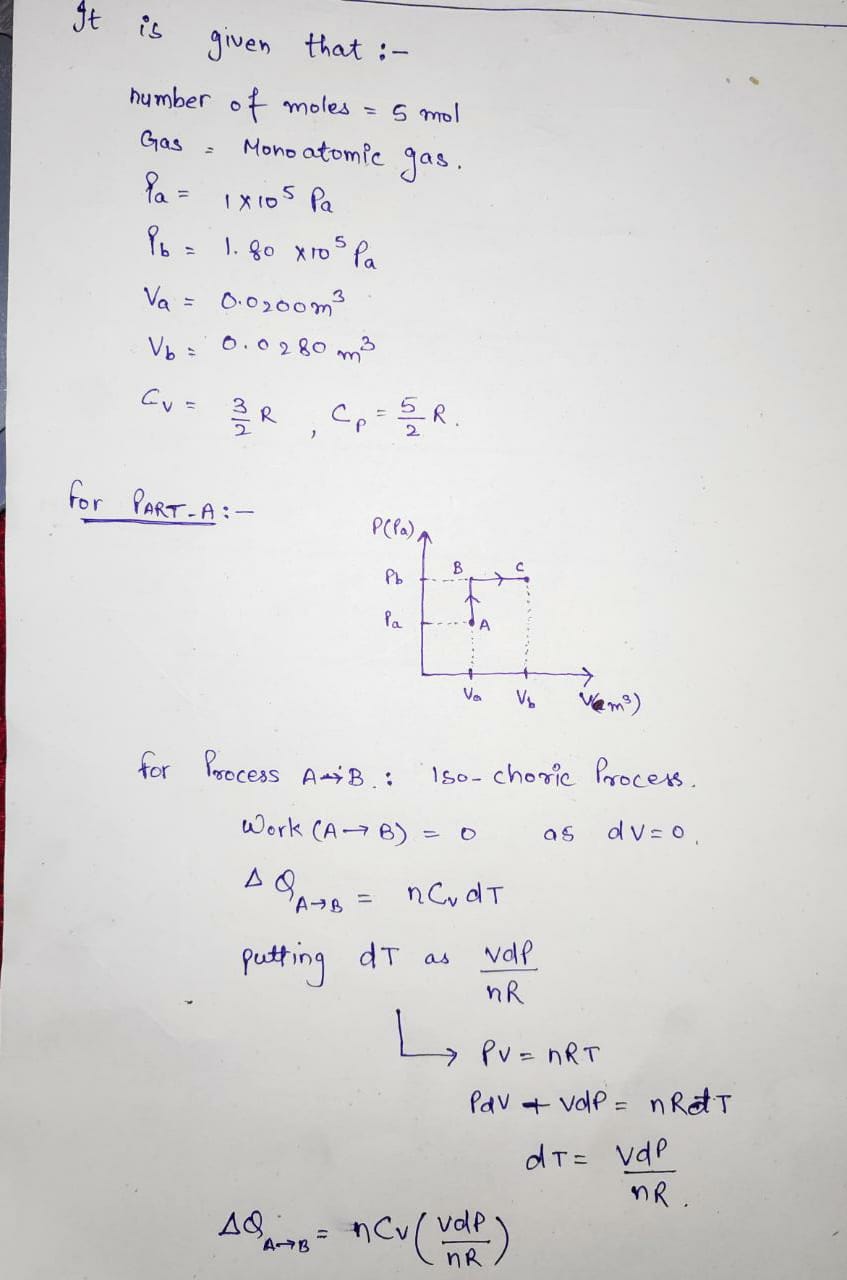 It is given that :-
number of moles = 5 mol
Gas = Monoatomic gas.
Pa = 1 x 10⁵ Pa
Pb = 1.80 x 10⁵ Pa
Va = 0.0200 m³
Vb = 0.0280 m³
Cv = 3/2 R , Cp = 5/2 R.
for PART-A :-
P(Pa)
Pb B C
Pa A
Va Vb V(m³)
for Process A→B : Iso-choric Process.
Work (A→B) = 0 as dV=0.
ΔQ A→B = nCv dT
putting dT as VdP/nR
PV = nRT
PdV + VdP = nRdT
dT = VdP/nR.
ΔQ A→B = nCv (VdP/nR)